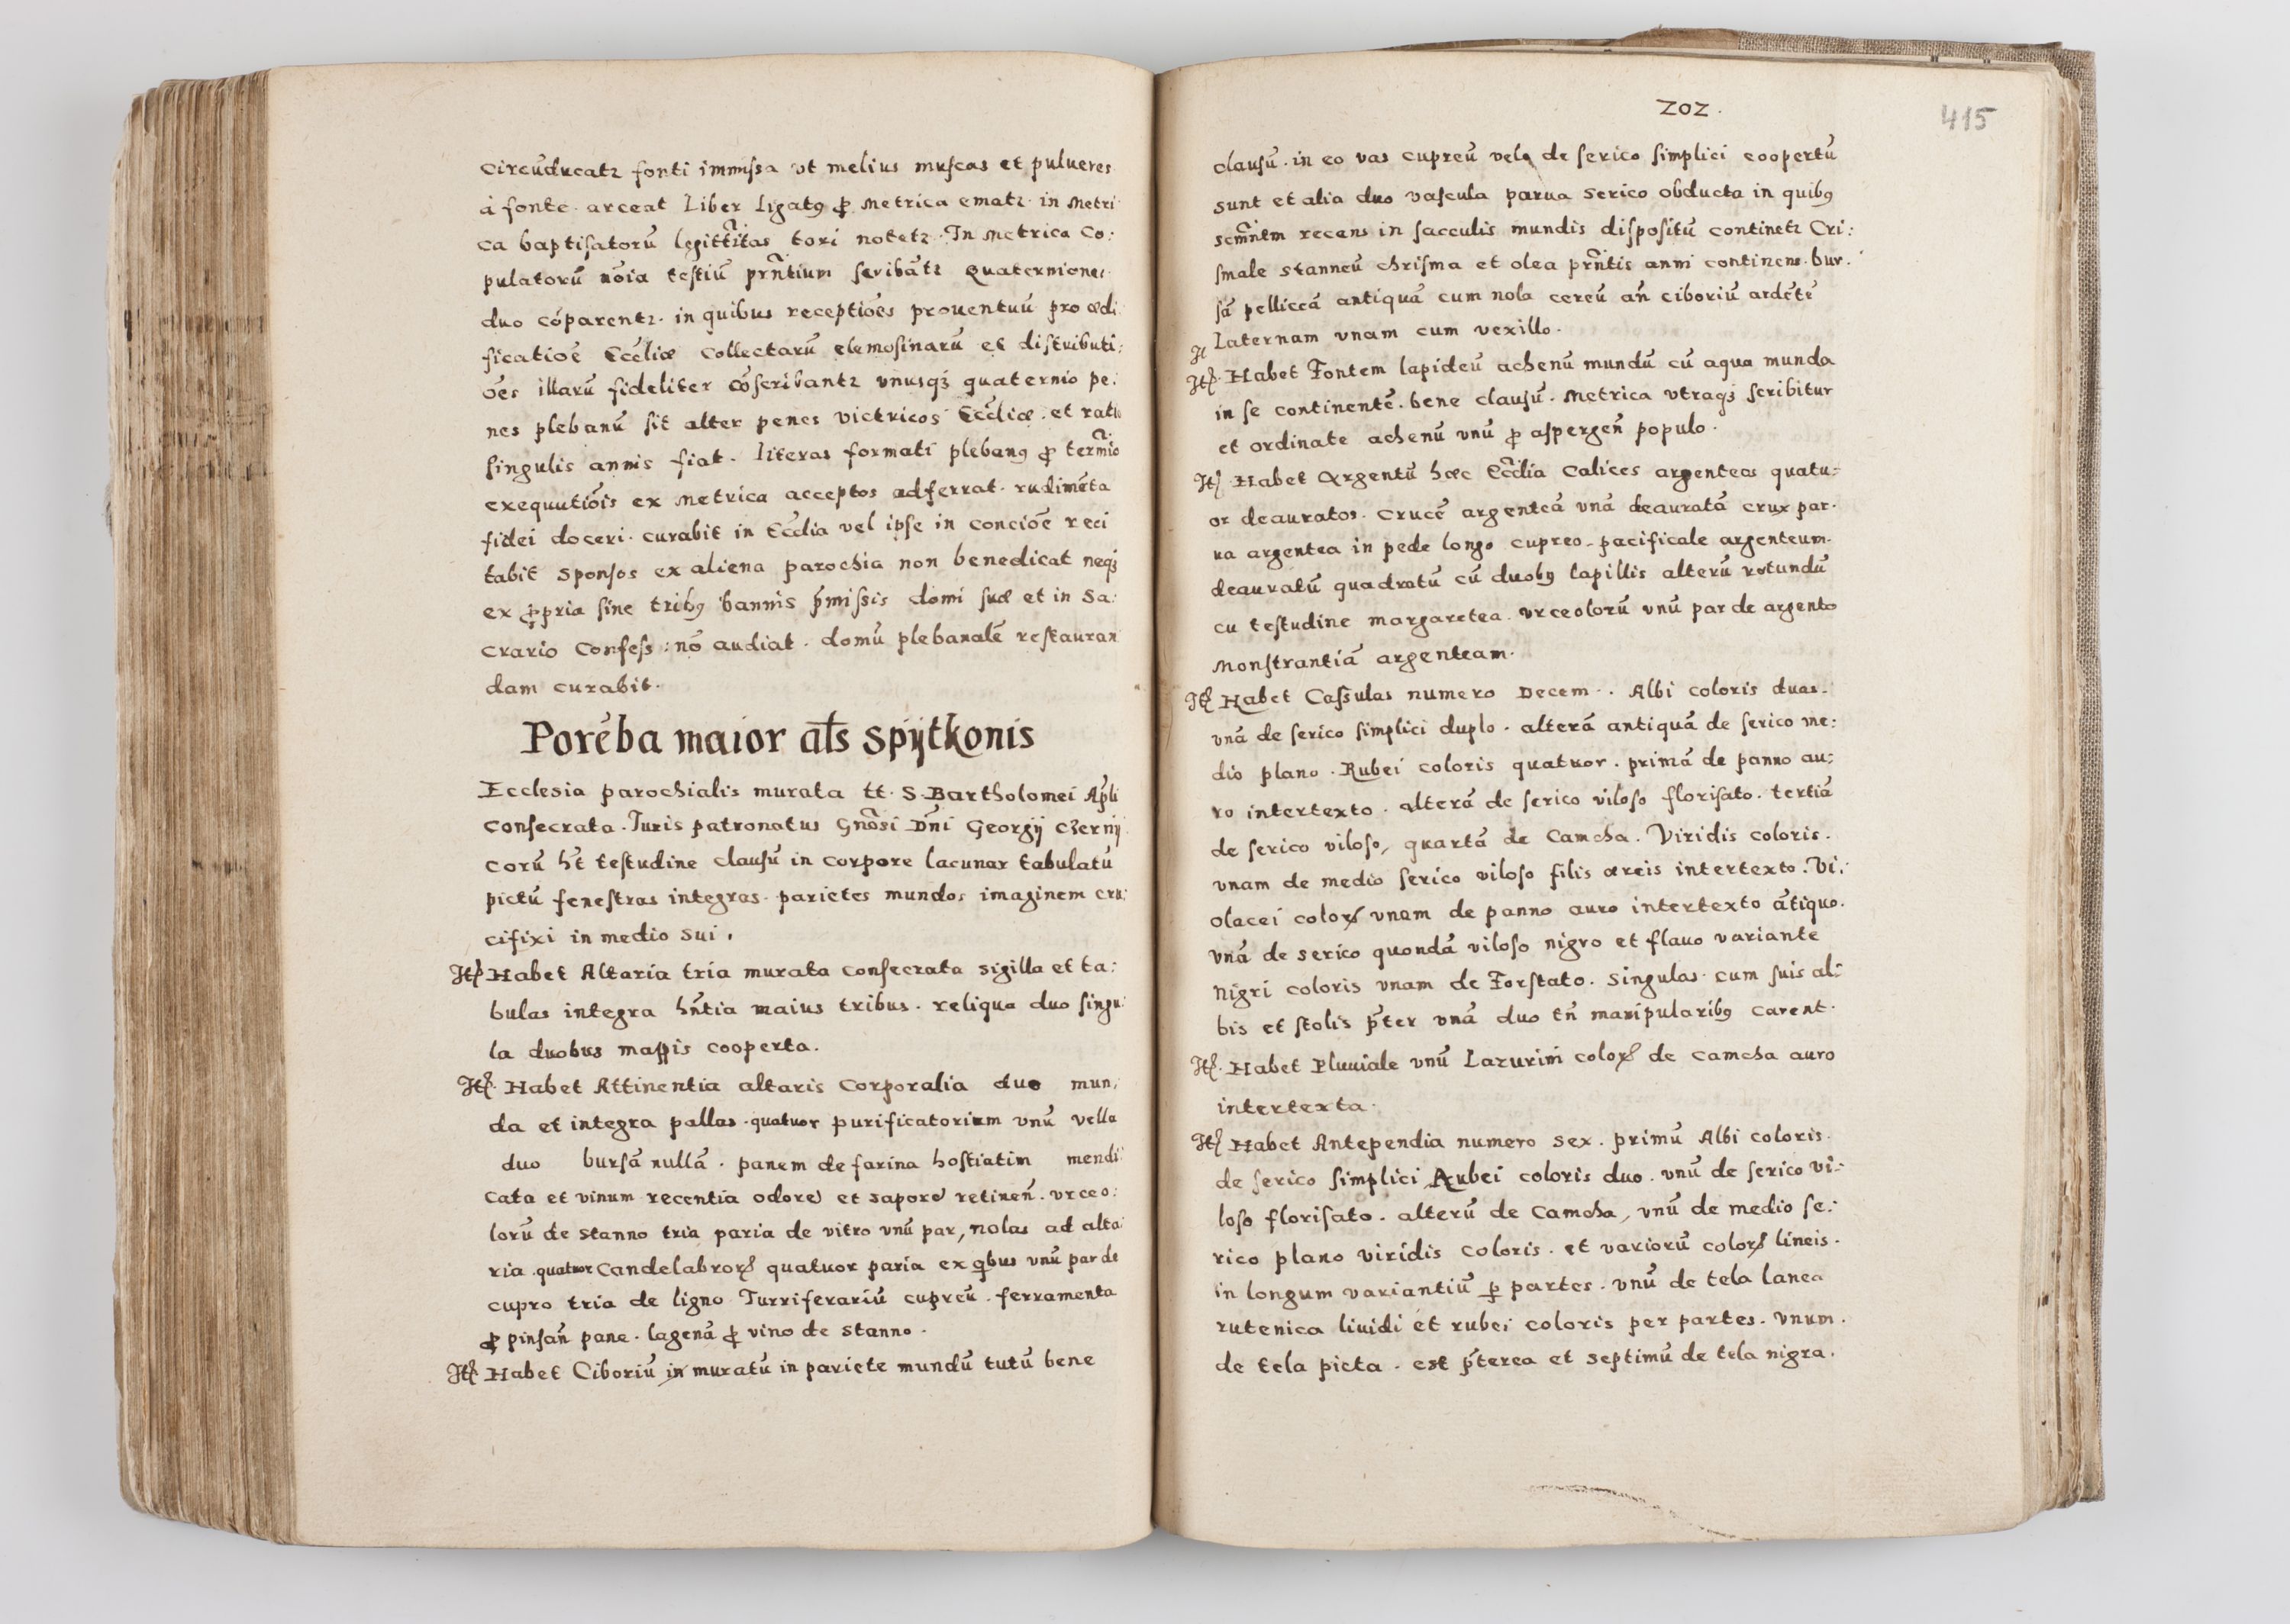 circūducatꝛ fonti immiſsa vt melius muſcas et pulueres
à fonte. arceat Liber ligatꝯ ꝓ Metrica ematꝛ. in Metri
ca baptiſatorū legittĩtas tori notetꝛ. In Metrica Co:
pulatorū nōia teſtiū prñtium ſcribātꝛ Quaterniones
duo cōparentꝛ. in quibus receptiōes prouentuū pro ædi
ficatiōe Eccłiæ Collectarū elemoſinarū et diſtributi:
ōes illarū fideliter cōſcribantꝛ vnusqꝫ quaternio pe:
nes plebanū ſit alter penes victricos Eccłiæ. et ratio
ſingulis annis fiat. literas formati plebanꝯ ꝓ termīo
exequutiōis ex Metrica acceptos adferrat. rudimēta
fidei doceri. curabit in Eccłia vel ipſe in conciōe reci
tabit Sponſos ex aliena parochia non benedicat neqꝫ
ex ꝓpria ſine tribꝯ bannis p̄miſsis domi ſuæ et in Sa:
crario Confeſs: nō audiat. domū plebanalē reſtauran
dam curabit.
Porēba maior ałs Spÿtkonis
Ecclesia parochialis murata tt. S. Bartholomei Ap̄li
Conſecrata. Iuris patronatus Gnōsi Dñi Georgij Czernÿ
Corū hēt teſtudine clauſū in corpore lacunar tabulatū
pictū feneſtras integras. parietes mundos imaginem cru:
cifixi in medio sui.
Itꝭ Habet Altaria tria murata conſecrata sigilla et ta:
bulas integra hñtia maius tribus. reliqua duo ſingu:
la duobus mappis cooperta.
Itꝭ. Habet Attinentia altaris Corporalia duo mun:
da et integra pallas. quatuor purificatorium vnū vella
duo burſā nullā. panem de farina hoſtiatim mendi:
cata et vinum recentia odore et sapore retineñ. vrceo:
lorū de stanno tria paria de vitro vnū par, nolas ad alta:
ria. quatuor Candelabroꝝ quatuor paria ex qbus vnū par de
cupro tria de ligno Turriferariū cupreū. ferramenta
ꝓ pinſañ pane. lagenā ꝓ vino de stanno.
Itꝭ Habet Ciboriū in muratū in pariete mundū tutū bene
202.
415
clauſū. in eo vas cupreū velo de ſerico ſimplici coopertū
sunt et alia duo vaſcula parua serico obducta in quibꝯ
scm̃ntm recens in ſacculis mundis diſpoſitū continetꝛ Cri:
ſmale stanneū chriſma et olea prñtis anni continens. bur:
ſā pelliceā antiquā cum nola cereū añ ciboriū ardētē
It Laternam vnam cum vexillo.
Itꝭ. Habet Fontem lapideū achenū mundū cū aqua munda
in ſe continentē. bene clauſū. Metrica vtraqꝫ ſcribitur
et ordinate achenū vnū ꝓ aſpergeñ populo.
Itꝭ. Habet Argentū hæc Eccłia Calices argenteos quatu:
or deauratos. Crucē argenteā vnā deauratā crux par:
ua argentea in pede longo cupreo. pacificale argenteum.
deauratū quadratū cū duobꝯ lapillis alterū rotundū
cu teſtudine margaretea. vrceolorū vnū par de argento
Monſtrantiā argenteam.
Itꝭ Habet Caſsulas numero Decem. Albi coloris duas.
vnā de ſerico ſimplici duplo. alterā antiquā de ſerico me:
dio plano. Rubei coloris quatuor. primā de panno au:
ro intertexto. alterā de ſerico viloſo floriſato. tertiā
de ſerico viloſo, quartā de Camcha. Viridis coloris.
vnam de medio ſerico viloſo filis æreis intertexto. Vi:
olacei coloꝝ vnam de panno auro intertexto ātiquo.
vnā de serico quondā viloſo nigro et flauo variante
Nigri coloris vnam de Forſtato. Singulas cum ſuis al:
bis et ſtolis p̄ter vnā duo tñ manipularibꝯ carent.
Itꝭ. Habet Pluuiale vnū Lazurini coloꝝ de camcha auro
intertexta.
Itꝭ Habet Antependia numero sex. primū Albi coloris.
de ſerico ſimplici Rubei coloris duo. vnū de ſerico vi:
loſo floriſato. alterū de Camcha, vnū de medio ſe:
rico plano viridis coloris. et variorū coloꝝ lineis.
in longum variantiū ꝑ partes. vnū de tela lanea
rutenica liuidi et rubei coloris per partes. vnum.
de tela picta. est p̄terea et septimū de tela nigra.